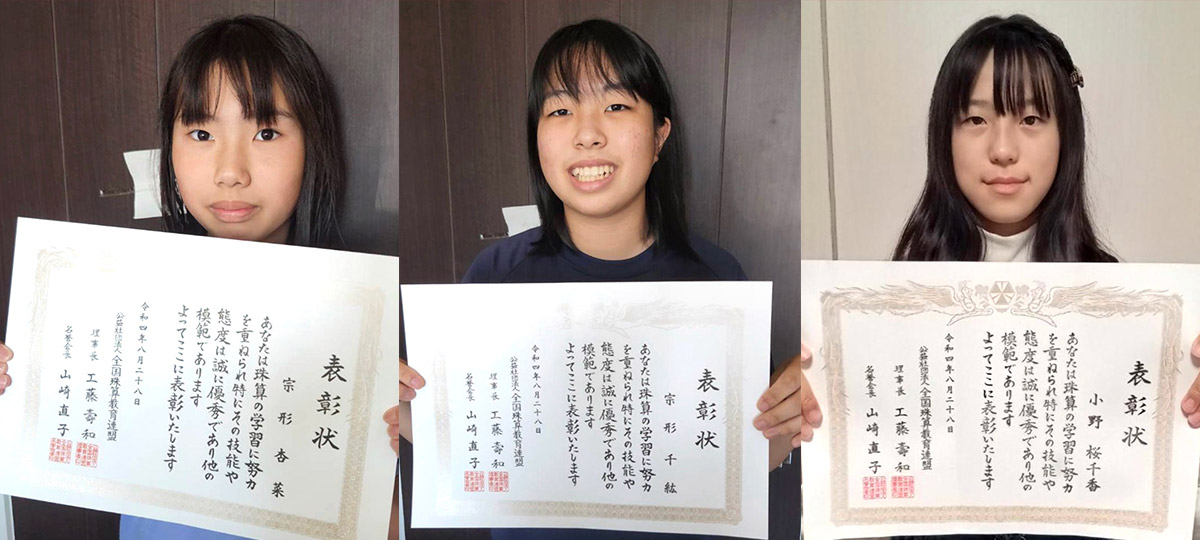 表彰状
宗形杏菜
あなたは珠算の学習に努力
を重ねられ特にその技能や
態度は誠に優秀であり他の
模範であります
よってここに表彰いたします
令和四年八月二十八日
公益社団法人全国珠算教育連盟
理事長 工藤壽和
名誉会長 山崎直子
表彰状
宗形千紘
あなたは珠算の学習に努力
を重ねられ特にその技能や
態度は誠に優秀であり他の
模範であります
よってここに表彰いたします
令和四年八月二十八日
公益社団法人全国珠算教育連盟
理事長 工藤壽和
名誉会長 山崎直子
表彰状
小野桜千香
あなたは珠算の学習に努力
を重ねられ特にその技能や
態度は誠に優秀であり他の
模範であります
よってここに表彰いたします
令和四年八月二十八日
公益社団法人全国珠算教育連盟
理事長 工藤壽和
名誉会長 山崎直子